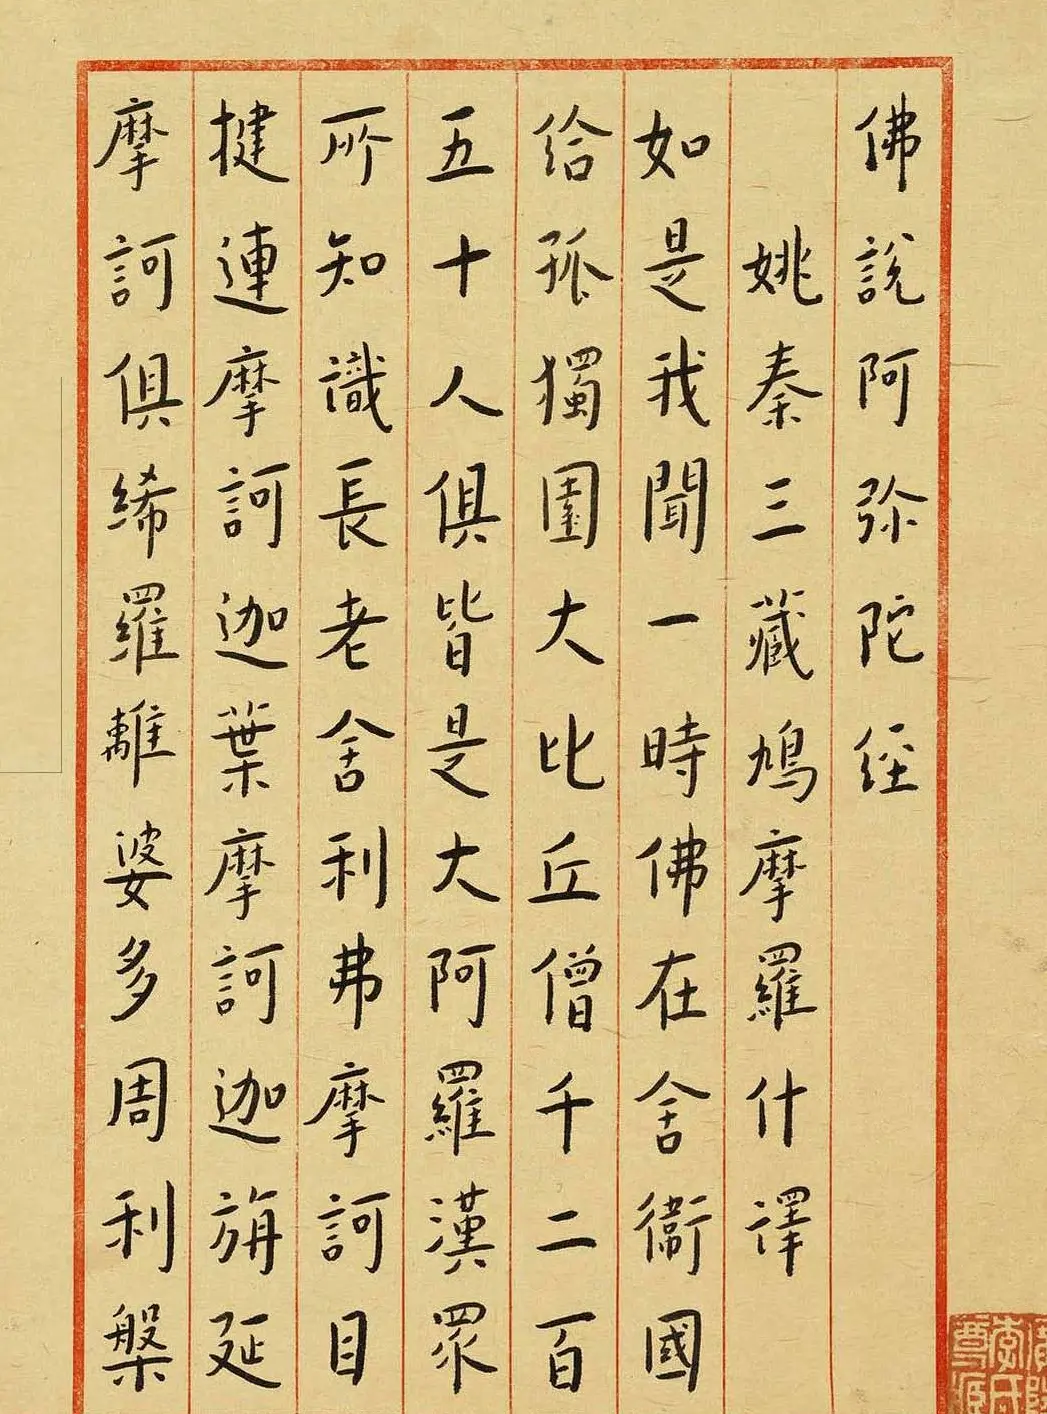 佛說阿弥陀经
姚秦三藏鳩摩羅什譯
如是我聞一時佛在舍衛國
給孤獨園大比丘僧千二百
五十人俱皆是大阿羅漢眾
所知識長老舍利弗摩訶目
揵連摩訶迦葉摩訶迦旃延
摩訶俱絺羅離婆多周利槃